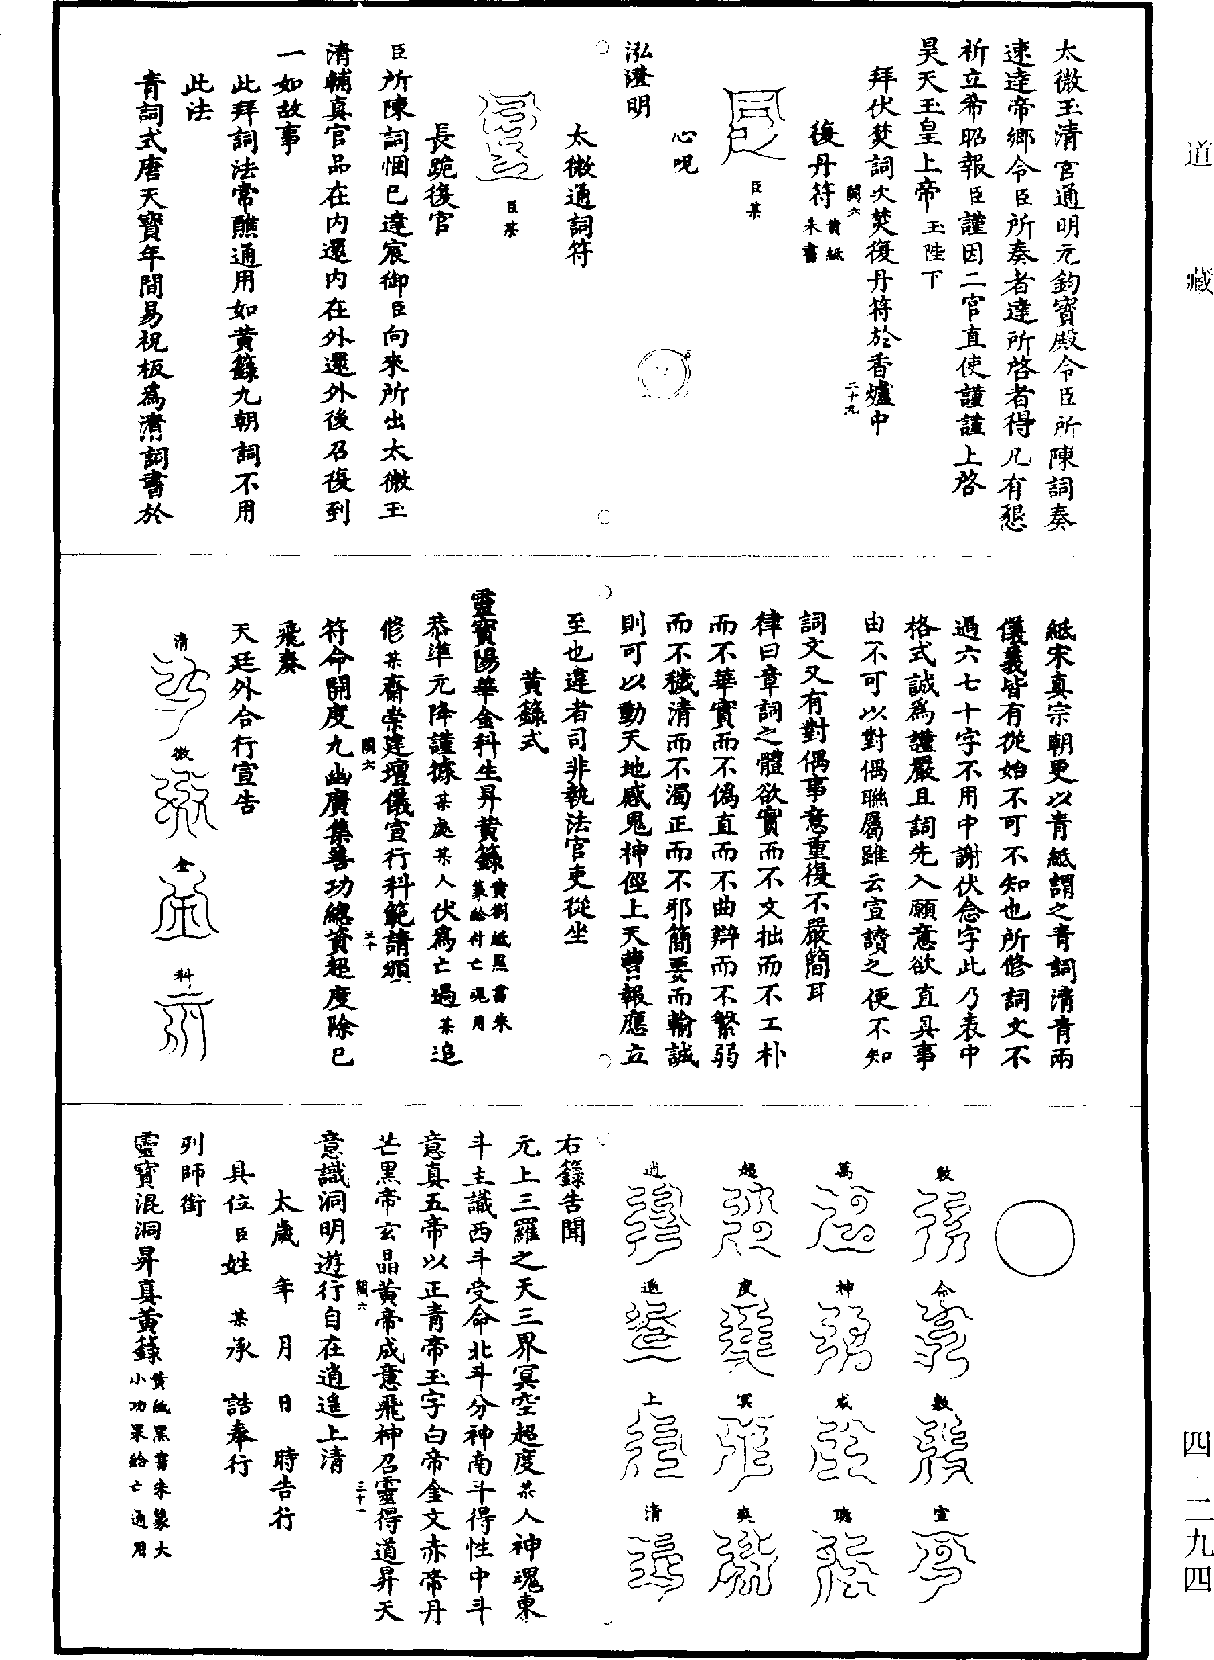 道藏
太微玉清宮通明元鈞寶殿令臣所陳詞奏
速達帝鄉令臣所奏者達所啓者得凡有懇
祈立希昭報臣謹因二官直使謹謹上啓
昊天玉皇上帝玉陛下
拜伏焚詞次焚復丹符於香爐中
關六
二十九
復丹符黃紙朱書
臣某
心呪
泓澄明
太微通詞符
臣某
長跪復官
臣所陳詞悃已達宸御臣向來所出太微玉
清輔真官品在內還內在外還外後召復到
一如故事
此拜詞法常醮通用如黃籙九朝詞不用
此法
青詞式唐天寶年間易祝板為清詞書於
紙宋真宗朝更以青紙謂之青詞清青兩
儀義皆有從始不可不知也所修詞文不
過六七十字不用中謝伏念字此乃表中
格式誠為謹嚴且詞先入願意欲直具事
由不可以對偶聯屬雖云宣讀之便不知
詞文又有對偶事意重復不嚴簡耳
律曰章詞之體欲實而不文拙而不工朴
而不華實而不偽直而不曲辯而不繁弱
而不穢清而不濁正而不邪簡要而輸誠
則可以動天地感鬼神徑上天曹報應立
至也違者司非執法官吏從坐
黃籙式
靈寶陽華金科生昇黃籙黃劄紙黑書朱篆給付亡魂用
恭準元降謹據某處某人伏為亡過某追
修某齋崇建壇儀宣行科範請頒
關六
三十
符命開度九幽廣集善功總資超度除已
飛奏
天廷外合行宣告
清
微
金
科
敕
命
敷
宣
萬
神
咸
聽
超
度
冥
爽
逍
遙
上
清
右籙告聞
元上三羅之天三界冥空超度某人神魂東
斗主識西斗受命北斗分神南斗得性中斗
意真五帝以正青帝玉字白帝金文赤帝丹
芒黑帝玄晶黃帝成意飛神召靈得道昇天
關六
三十一
意識洞明遊行自在逍遙上清
太歲　年　月　日　時告行
具位臣姓　某承　誥奉行
列師銜
靈寶混洞昇真黃籙黃紙黑書朱篆大小功果給亡通用
四·二九四